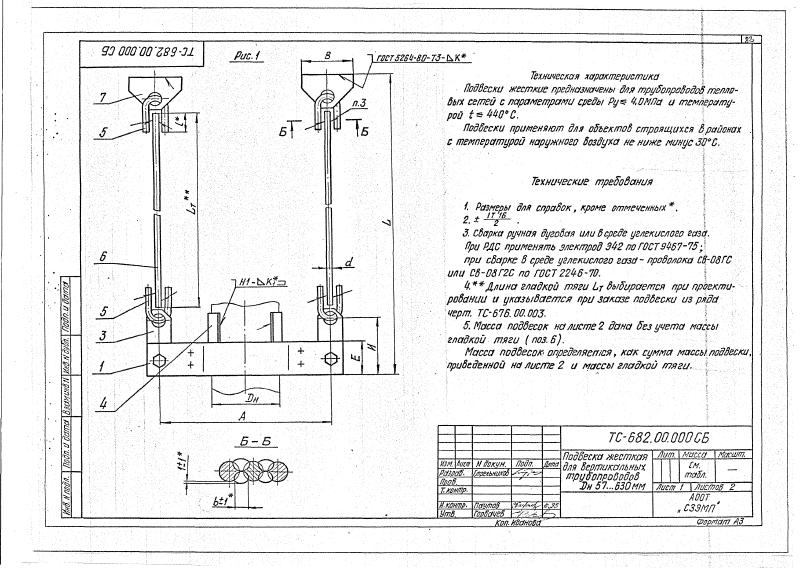 ТС-682.00.000 СБ
Рис. 1
В
ГОСТ 5264-80-Т3-⊿К*
7
п.3
5
L*
Б
Б
Lт**
L
6
d
Н1-⊿К*
5
3
1
4
Е
Н
Dн
А
Б – Б
1±1*
b±1*
Техническая характеристика
Подвески жесткие предназначены для трубопроводов тепло-
вых сетей с параметрами среды Ру= 4,0МПа и температу-
рой t = 440°С.
Подвески применяют для объектов строящихся в районах
с температурой наружного воздуха не ниже минус 30°С.
Технические требования
1. Размеры для справок, кроме отмеченных*.
2. ± IT 16/2
3. Сварка ручная дуговая или в среде углекислого газа.
При РДС применять электрод Э42 по ГОСТ 9467-75;
при сварке в среде углекислого газа - проволока СВ-08ГС
или СВ-08Г2С по ГОСТ 2246-70.
4.** Длина гладкой тяги Lт выбирается при проекти-
ровании и указывается при заказе подвески из ряда
черт. ТС-676.00.003.
5. Масса подвесок на листе 2 дана без учета массы
гладкой тяги (поз. 6).
Масса подвесок определяется, как сумма массы подвески,
приведенной на листе 2 и массы гладкой тяги.
Подп. и дата
Инв.N дубл.
Взам.инв.N
Подп. и дата
Инв.N подл.
ТС-682.00.000 СБ
Изм. Лист N докум. Подп. Дата
Разраб.
Пров.
Т. контр.
Н. контр. Паутов
Утв. Горбачев
Подвеска жесткая
для вертикальных
трубопроводов
Dн 57...630 мм
Лит. Масса Масшт.
См.
табл. —
Лист 1 Листов 2
АООТ
"СЗЭМП"
Коп. Иванова
Формат А3